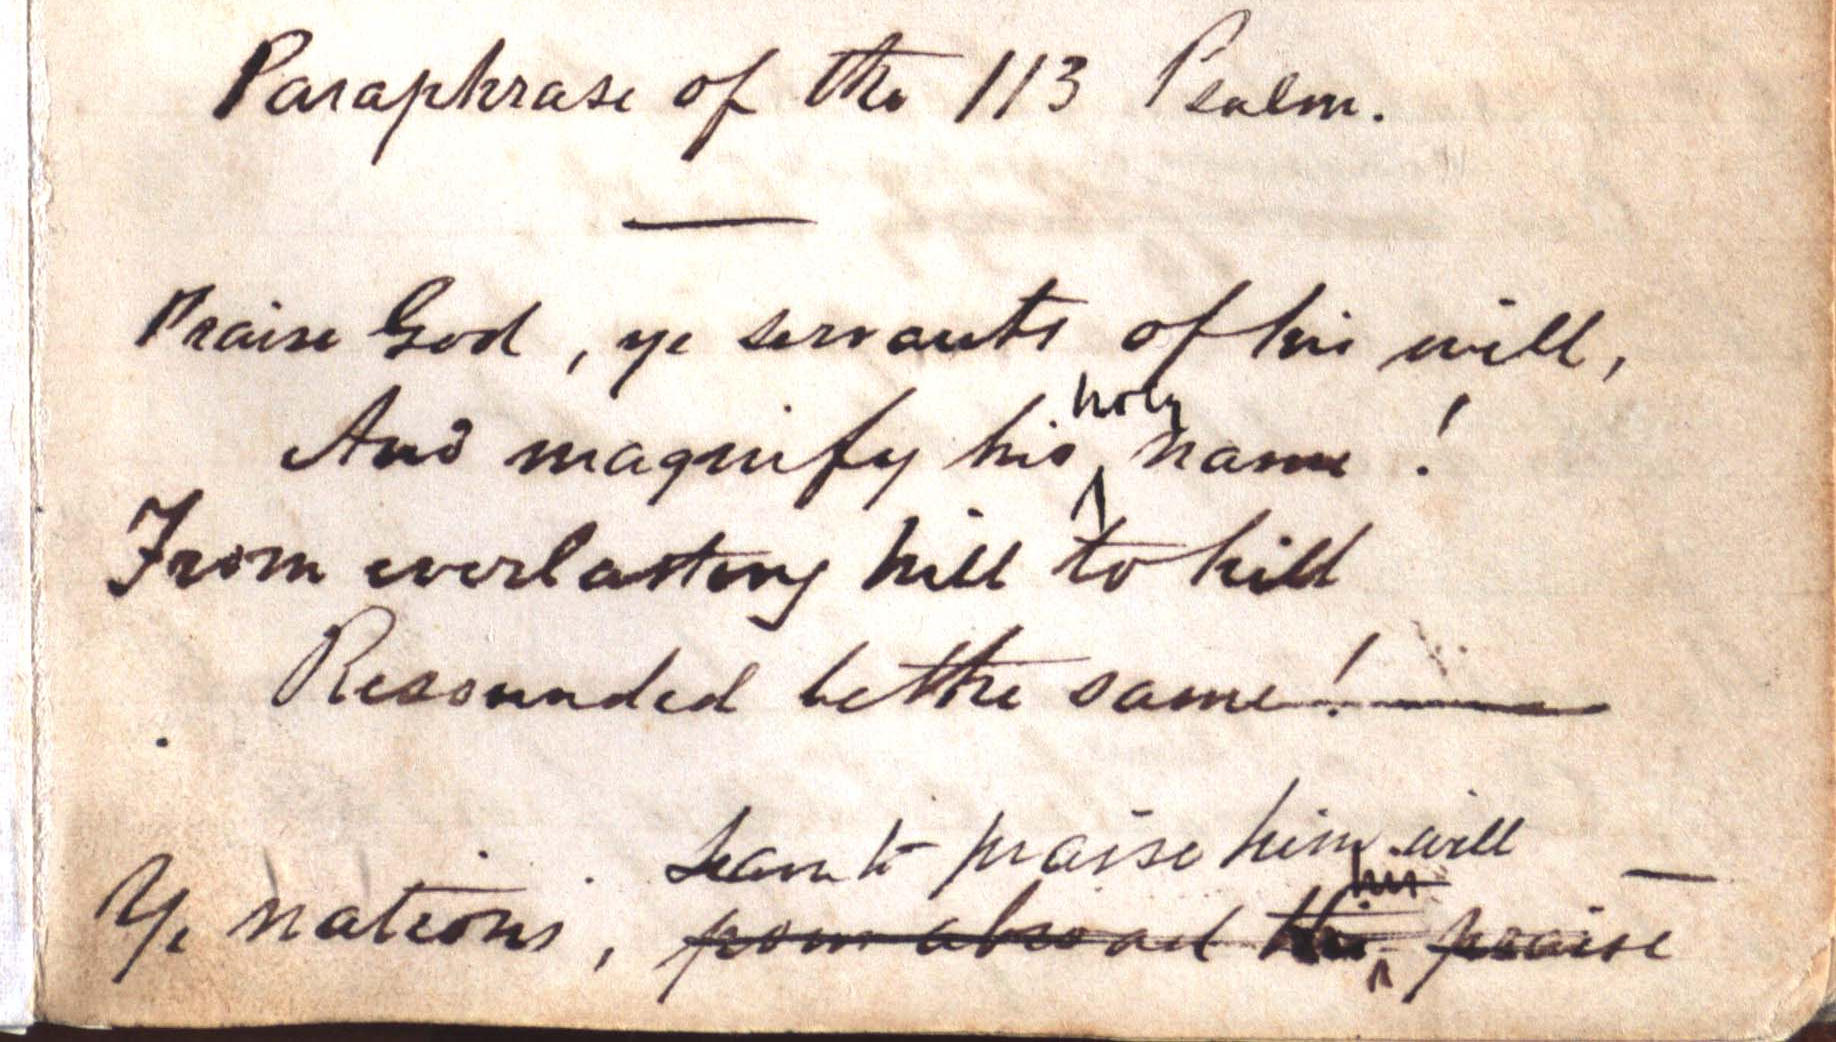 Paraphrase of the 113 Psalm.
Praise God, ye servants of his will,
And magnify his holy name!
From everlasting hill to hill
Resounded be the same!
learn to praise him will
his
Ye nations, abroad praise